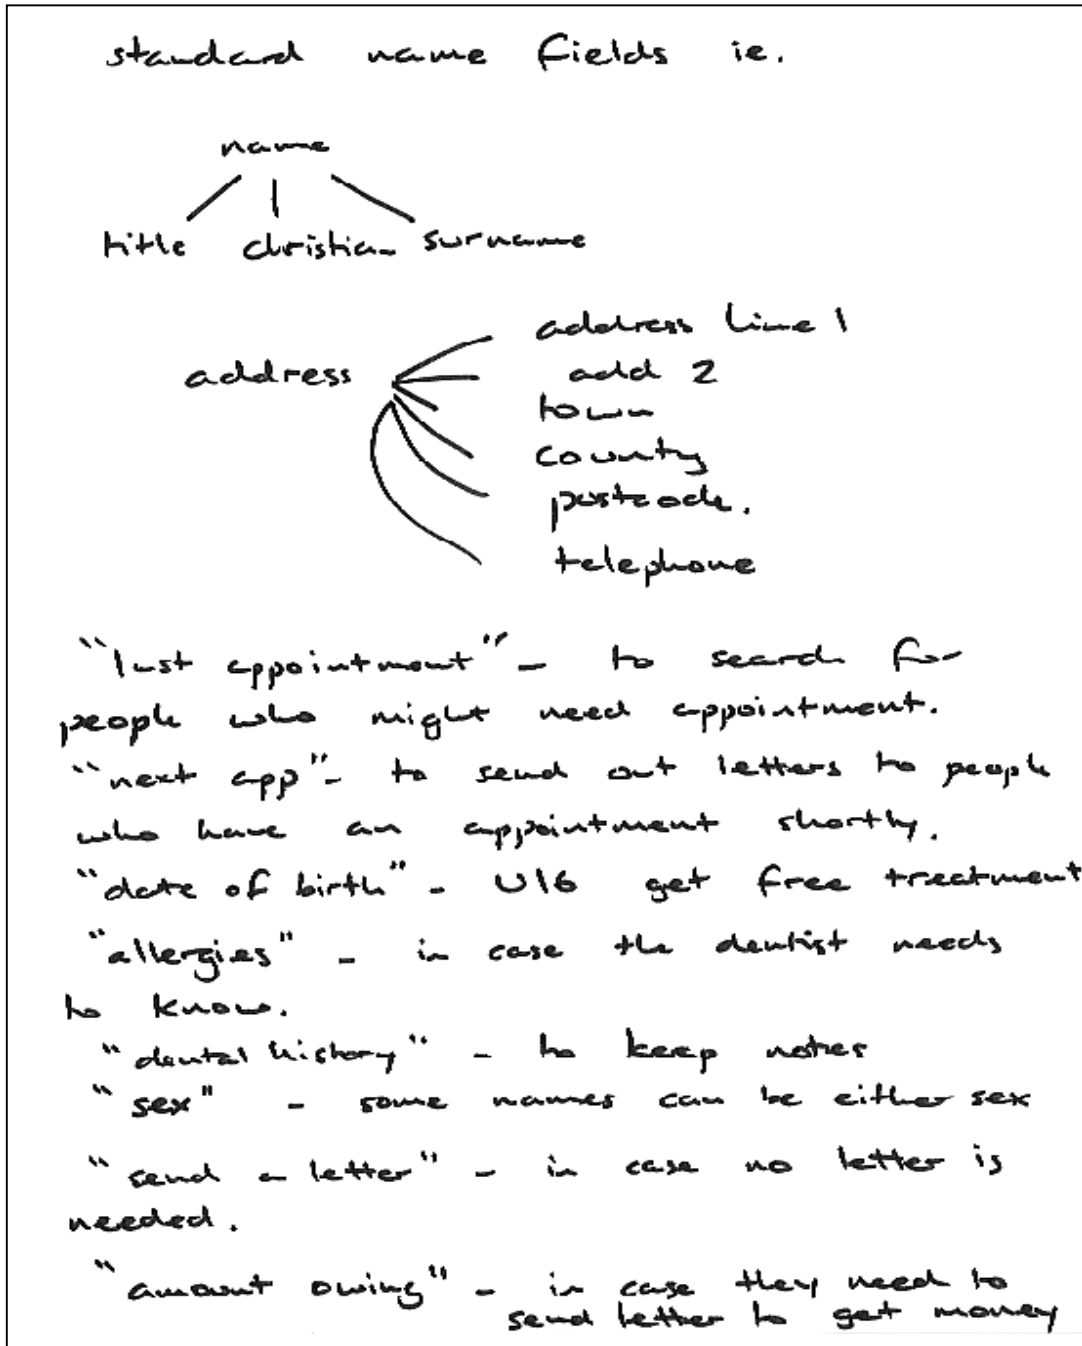 standard name fields ie.
name
title christian surname
address line 1
address add 2
town
county
postcode.
telephone
"last appointment" - to search for
people who might need appointment.
"next app" - to send out letters to people
who have an appointment shortly.
"date of birth" - U16 get free treatment
"allergies" - in case the dentist needs
to know.
"dental history" - to keep notes
"sex" - some names can be either sex
"send a letter" - in case no letter is
needed.
"amount owing" - in case they need to
send letter to get money